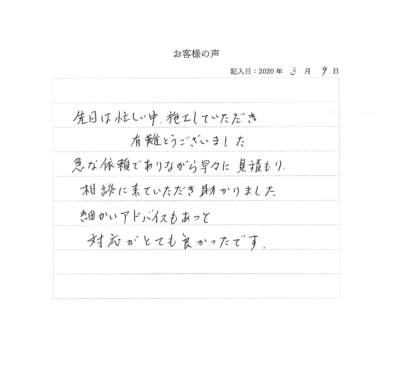 お客様の声
記入日：2020年 3月 9日
先日は忙しい中、施工していただき
有難とうございました
急な依頼でありながら早々に見積もり、
相談に来ていただき助かりました
細かいアドバイスもあっと
対応がとても良かったです。